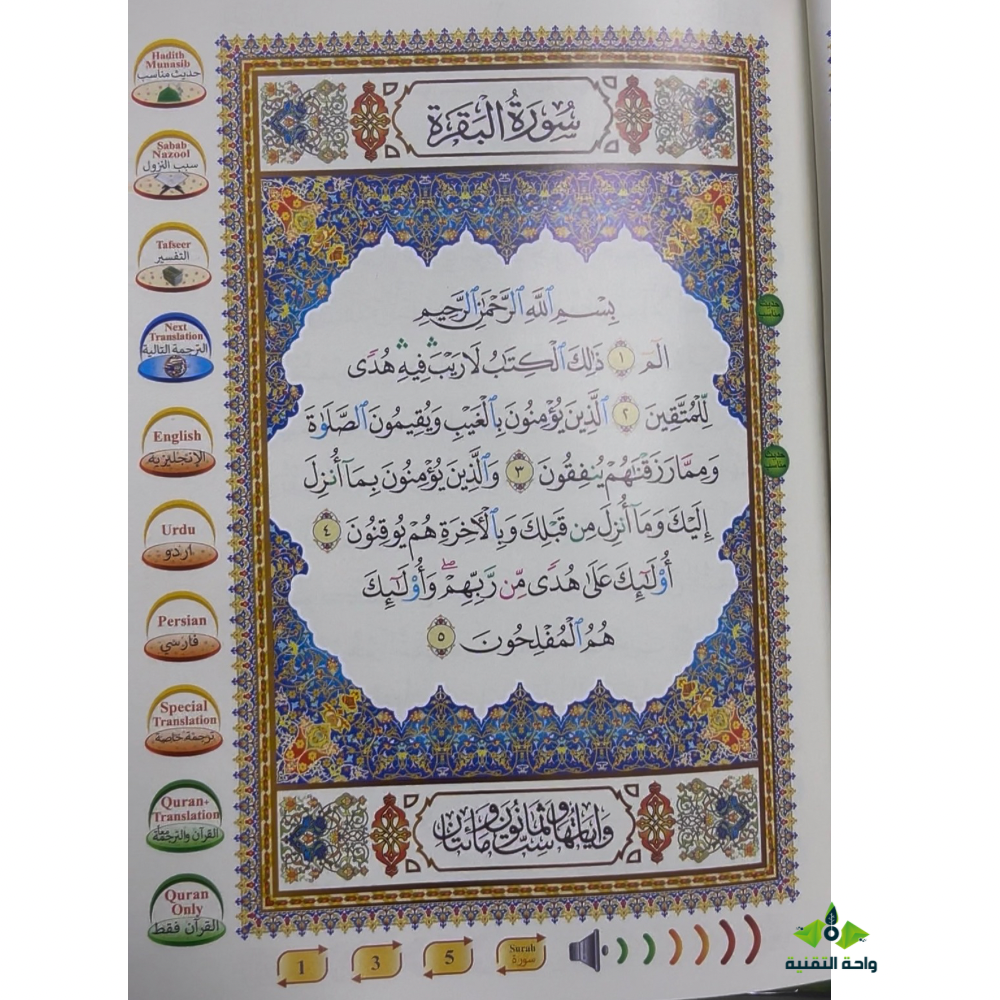 سُورَةُ الْبَقَرَة
بِسْمِ ٱللَّهِ ٱلرَّحْمَٰنِ ٱلرَّحِيمِ
الٓمٓ ١ ذَٰلِكَ ٱلْكِتَابُ لَا رَيْبَ فِيهِ هُدًى
لِّلْمُتَّقِينَ ٢ ٱلَّذِينَ يُؤْمِنُونَ بِٱلْغَيْبِ وَيُقِيمُونَ ٱلصَّلَوٰةَ
وَمِمَّا رَزَقْنَٰهُمْ يُنفِقُونَ ٣ وَٱلَّذِينَ يُؤْمِنُونَ بِمَآ أُنزِلَ
إِلَيْكَ وَمَآ أُنزِلَ مِن قَبْلِكَ وَبِٱلْأَخِرَةِ هُمْ يُوقِنُونَ ٤
أُو۟لَٰٓئِكَ عَلَىٰ هُدًى مِّن رَّبِّهِمْ ۖ وَأُو۟لَٰٓئِكَ
هُمُ ٱلْمُفْلِحُونَ ٥
وآياتها ست وثمانون ومائتان
Hadith
Munasib
حديث مناسب
Sabab
Nazool
سبب النزول
Tafseer
التفسير
Next
Translation
الترجمة التالية
English
الإنجليزية
Urdu
اردو
Persian
فارسي
Special
Translation
ترجمة خاصة
Quran+
Translation
القرآن والترجمة معاً
Quran
Only
القرآن فقط
حديث
مناسب
حديث
مناسب
1
3
5
Surah
سورة
واحة التقنية